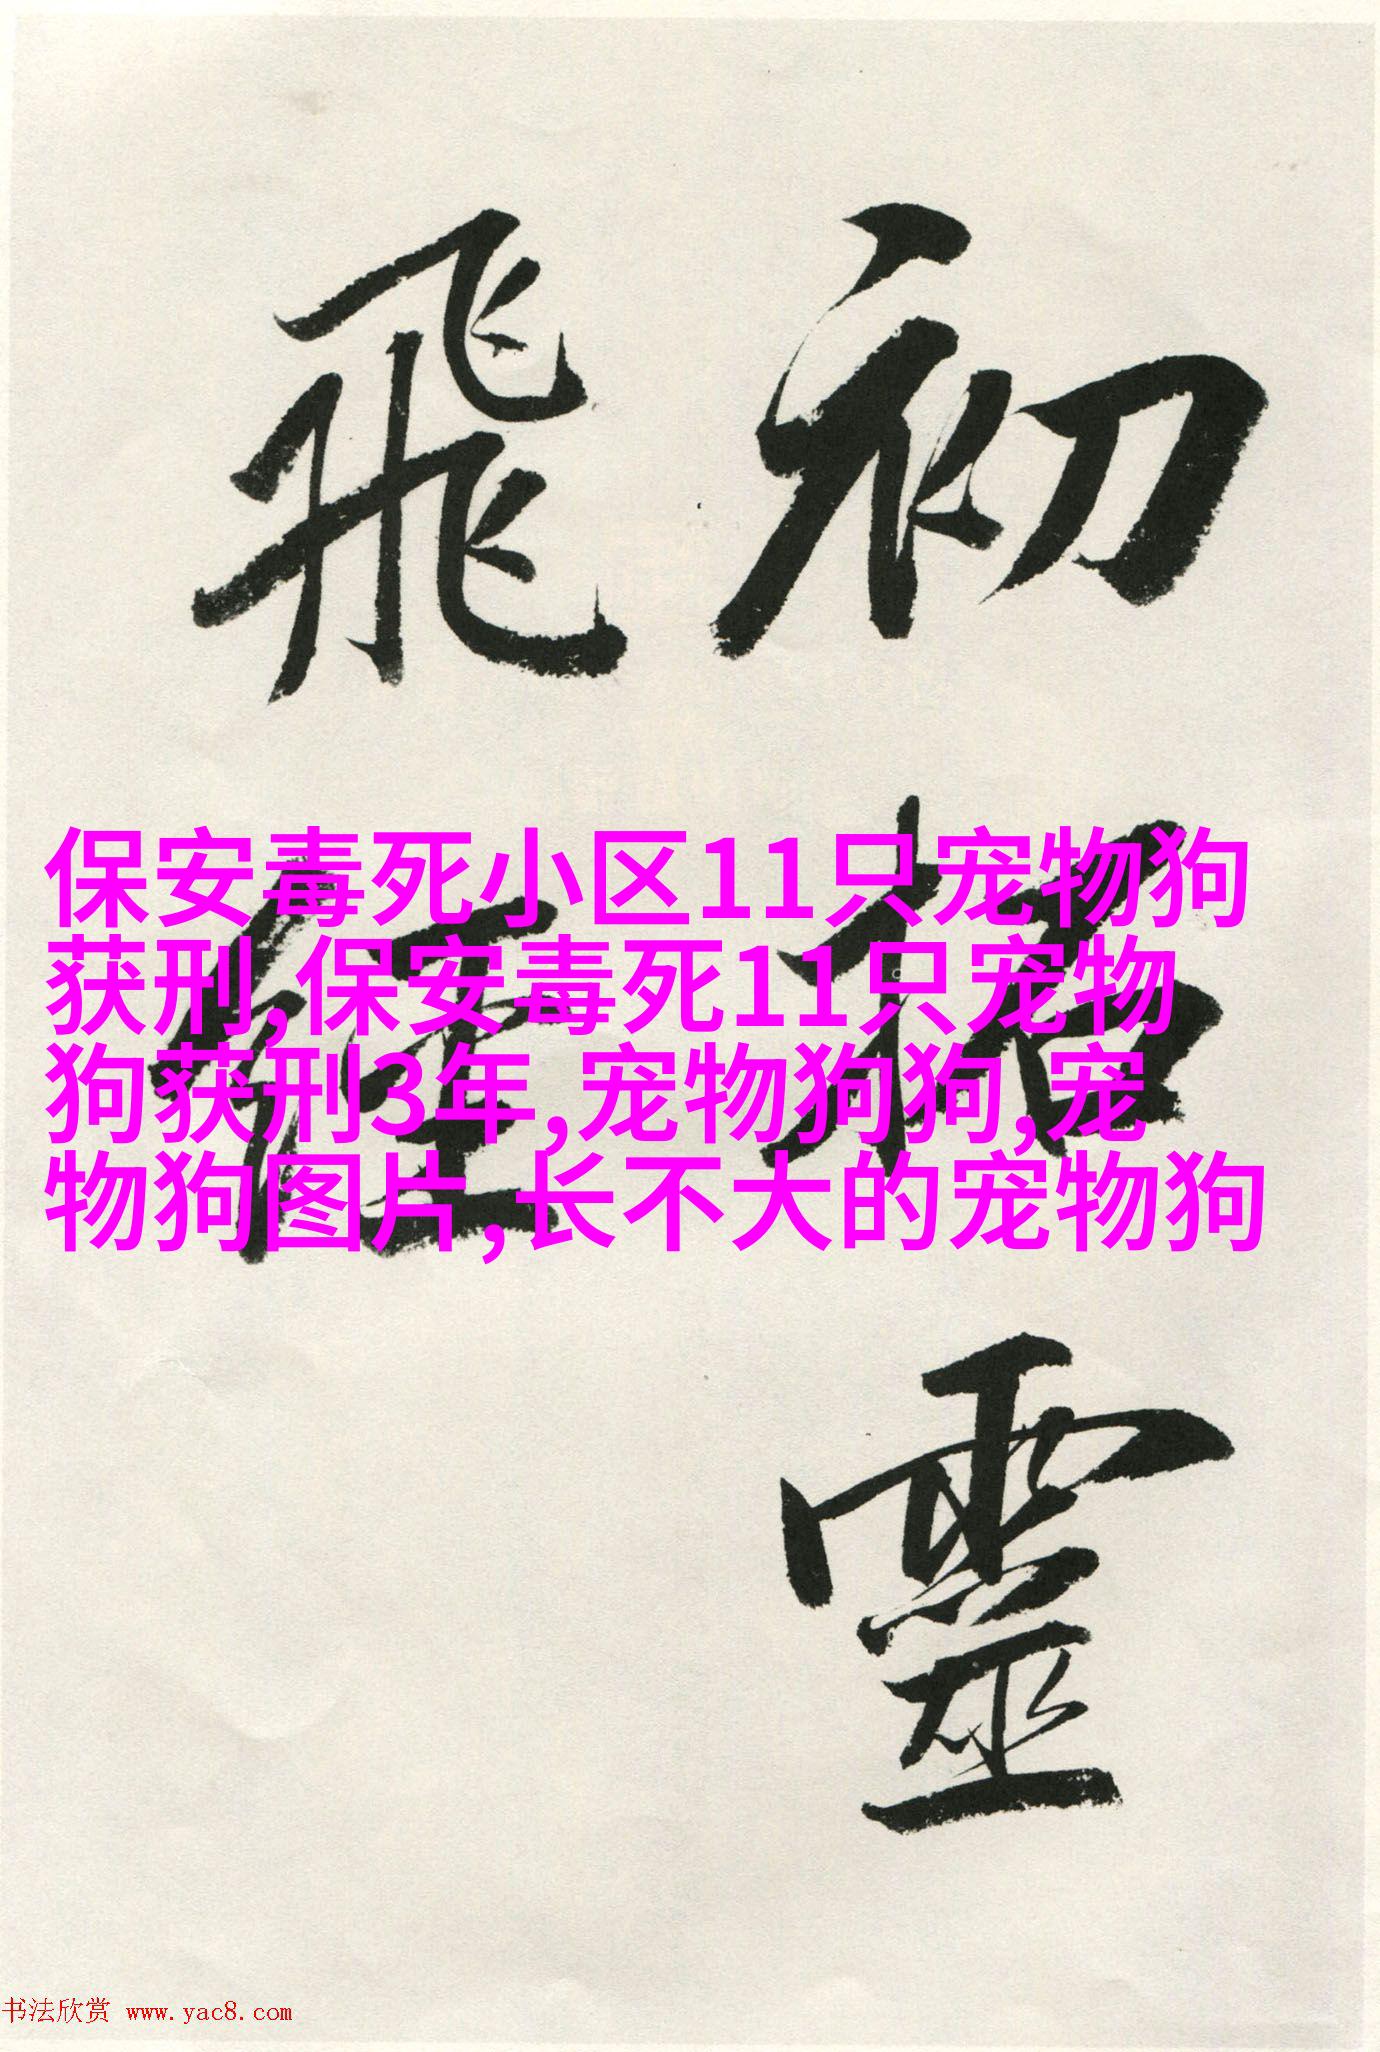 初拓靈
飛經
保安毒死小区11只宠物狗
获刑,保安毒死11只宠物
狗获刑3年,宠物狗狗,宠
物狗图片,长不大的宠物狗
书法欣赏 www.yac8.com